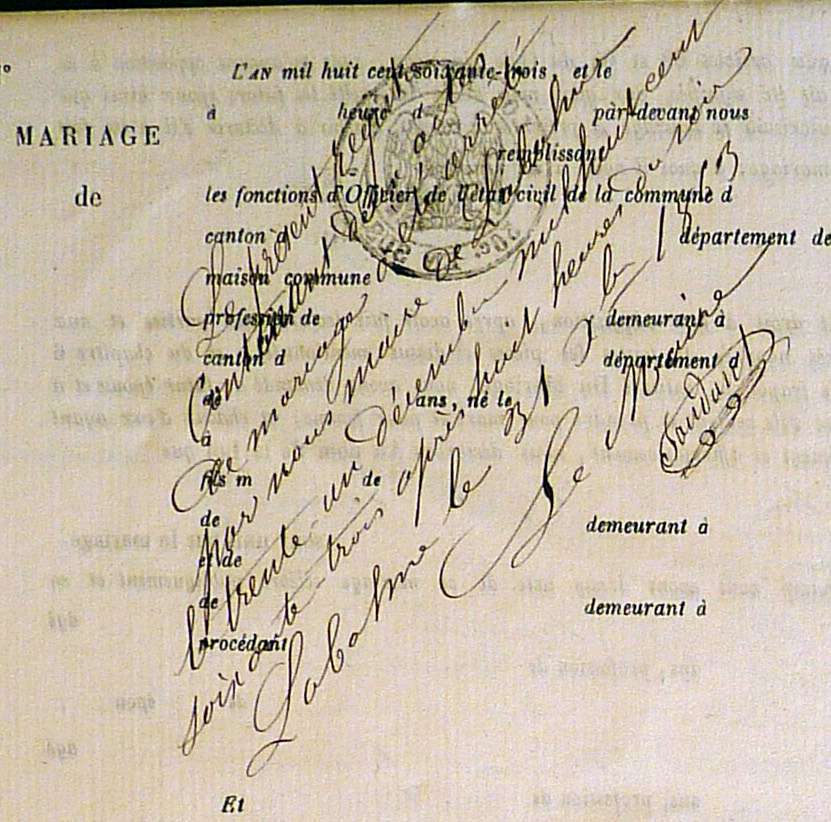 MARIAGE
de
L'AN mil huit cent soixante-trois et le
à heure d par-devant nous
remplissant
les fonctions d'Officier de l'état civil de la commune d
canton d département de
maison commune
profession de demeurant à
canton d département d
de ans, né le
à
fils m de
de demeurant à
et de
de demeurant à
procédant
Et
Le présent registre
Contenant deux actes
de mariage a été arrêté
par nous maire de
le trente un décembre mil huit cent
soixante trois après huit heures du soir
Labahme le 31 Xbre 1863
Le Maire